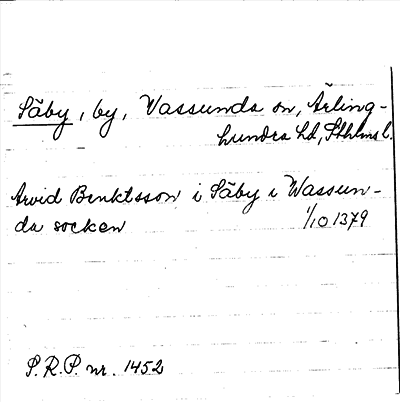 Säby, by, Vassunda sn, Ärling-
hundra hd, Sthlms l.
Arvid Benktsson i Säby i Wassun-
da socken 1/10 1379
S.R.P. nr. 1452